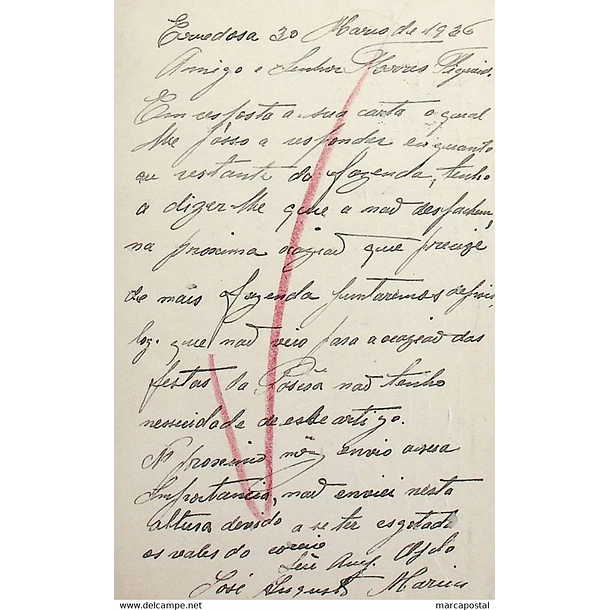 Ervedosa 30 Março de 1936
Amigo e Senhor Morais
Em resposta a sua carta o qual
lhe passo a responder enquanto
au restante da fazenda, tenho
a dizer-lhe que a nad despachem,
na proxima ocaziad que precize
de mais fazenda juntaremos depois,
log. que nad veio para a ocaziad das
festas da Páscoa nad tenho
nessecidade de este artigo.
No proximo mez envio a sua
Importancia, nad enviei nesta
altura devido a se ter esgotado
os vales do correio
Seu Am.
José Augusto
www.delcampe.net
marcapostal